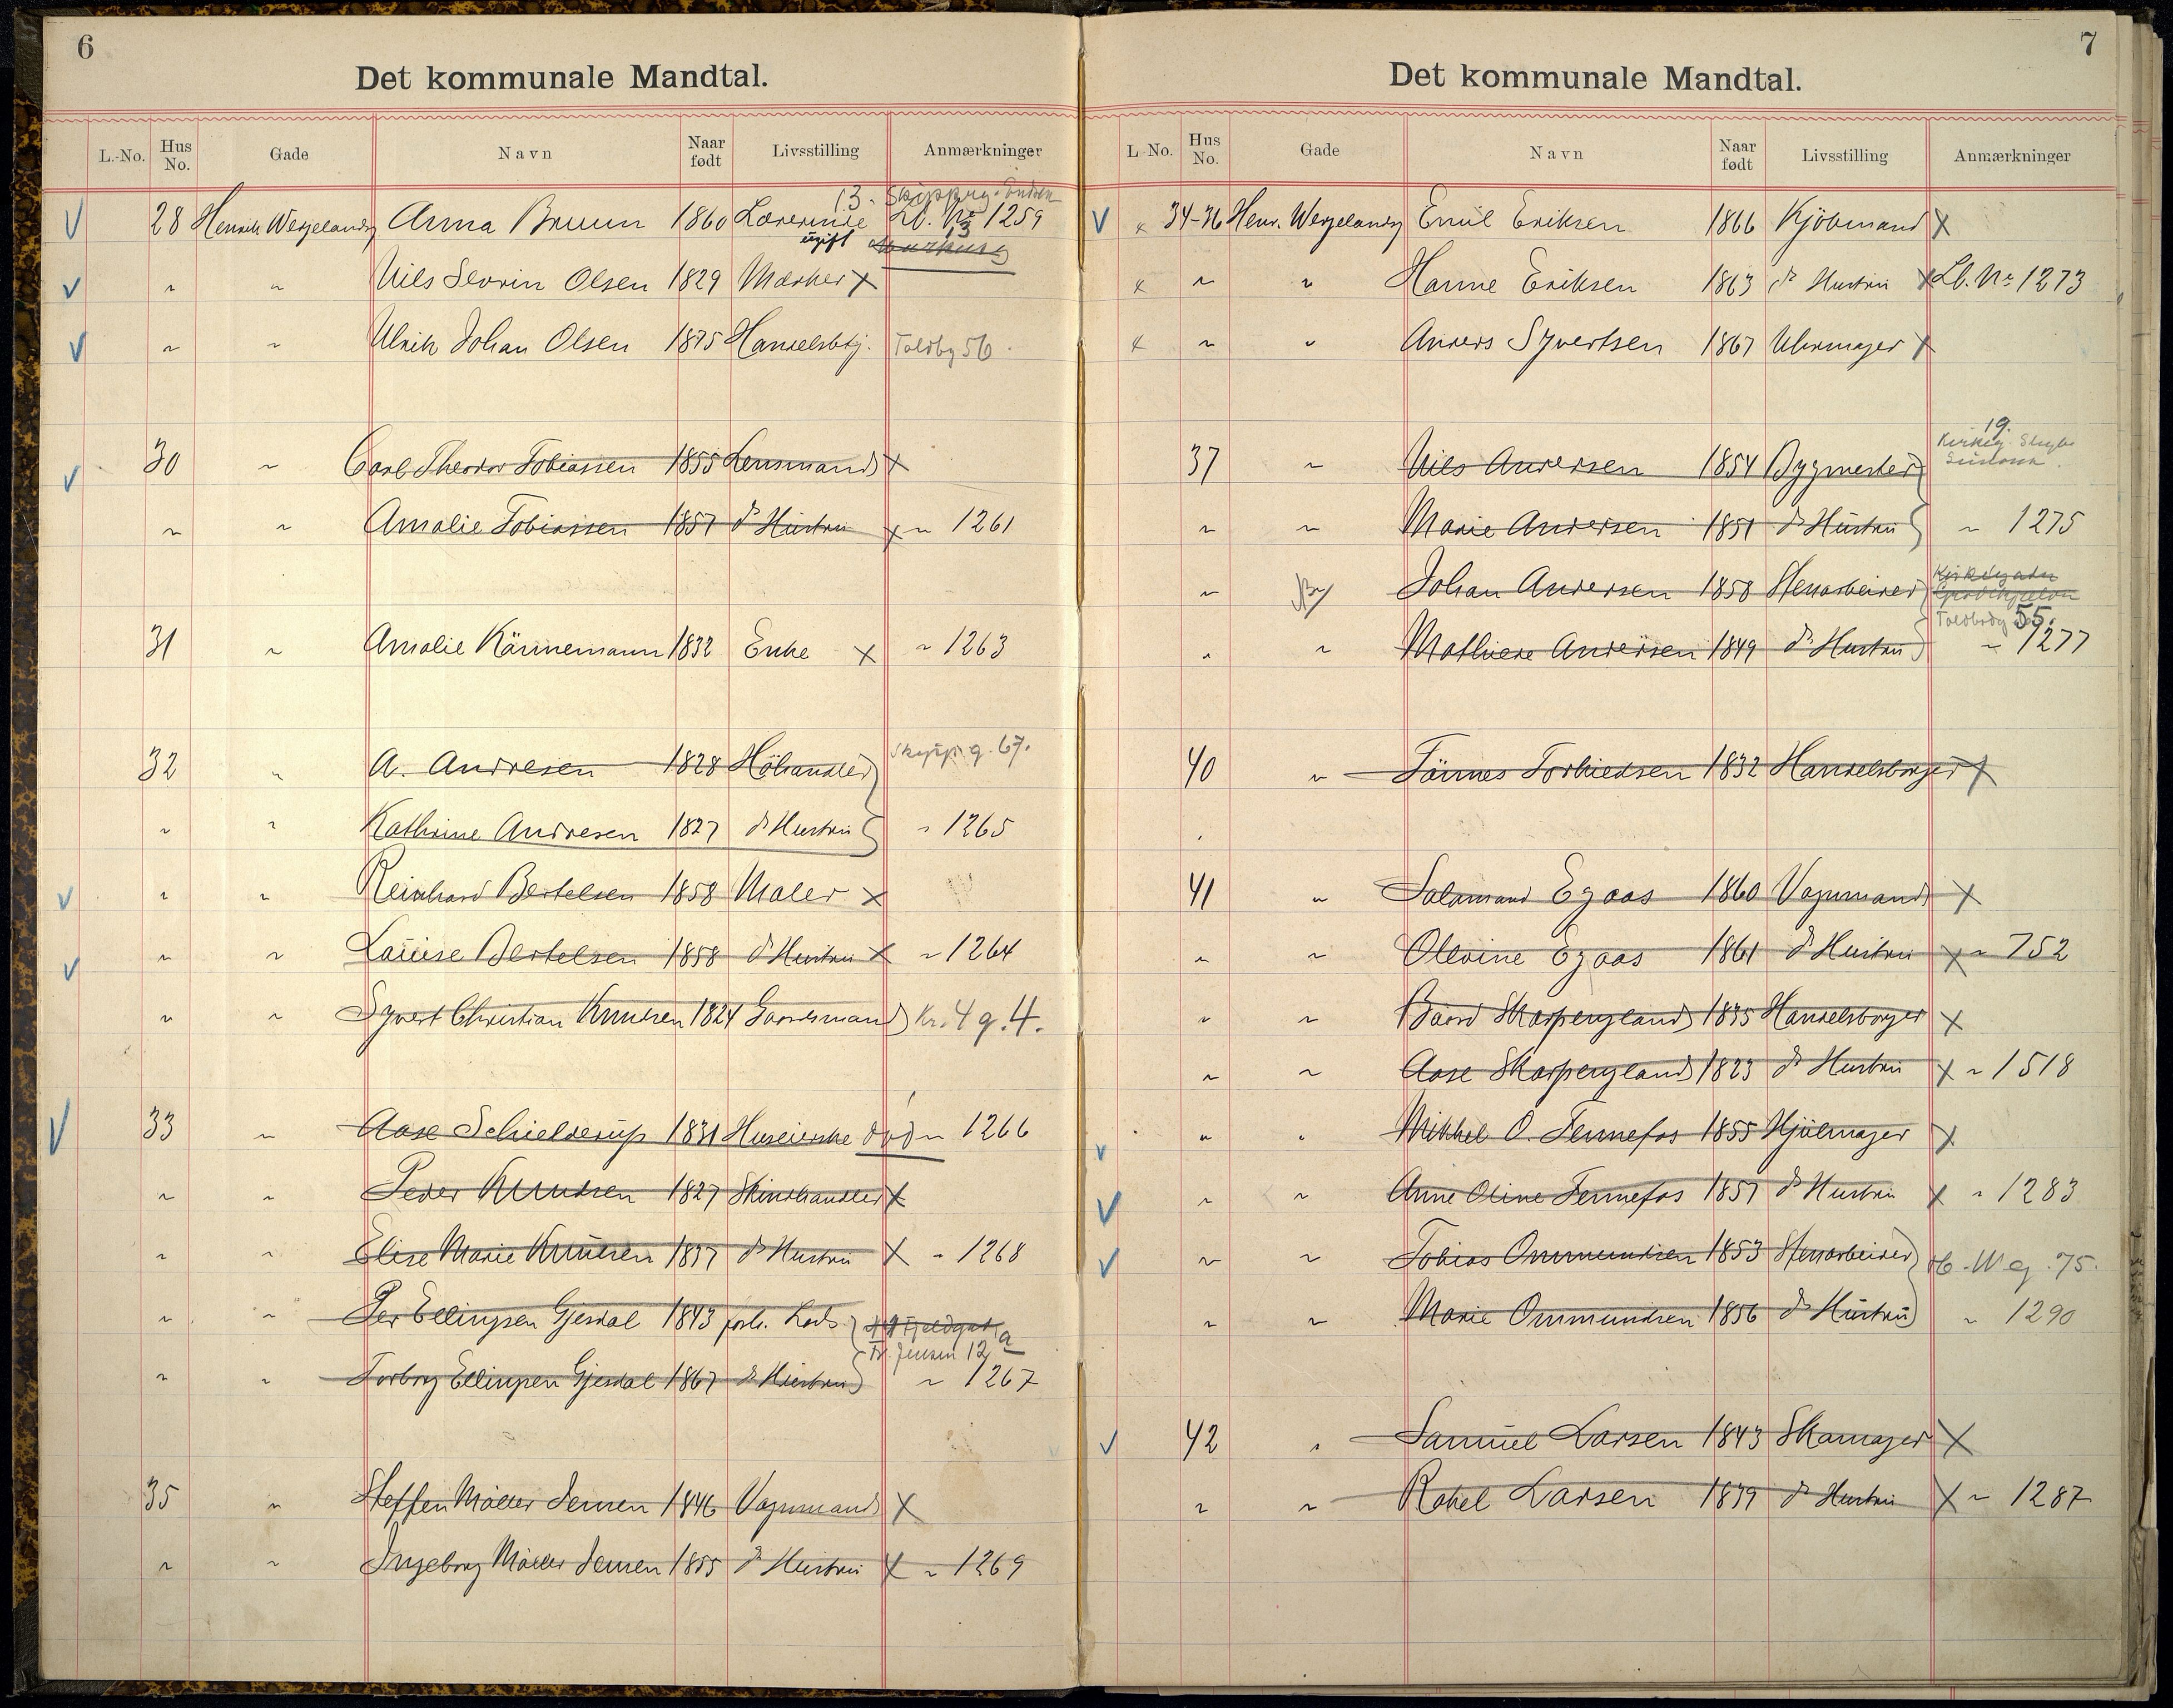 6
Det kommunale Mandtal.
L.-No. Hus No. Gade Navn Naar født Livsstilling Anmærkninger
13. Skipperg.
28 Henrik Wergelandsg Anna Bruun 1860 Lærerinde Lb. No 1259
ugift 13
" " Nils Sevrin Olsen 1829 Mæsker X
" " Ulrik Johan Olsen 1875 Handelsbtj. Toldbg 56.
30 " Carl Theodor Tobiassen 1855 Lensmand X
" " Amalie Tobiassen 1857 do Hustru X " 1261
31 " Amalie Kännemann 1832 Enke X " 1263
32 " A. Andresen 1828 Höhandler Skipp. g. 67.
" " Kathrine Andresen 1827 do Hustru " 1265
" " Reinhard Bertelsen 1858 Maler X
" " Louise Bertelsen 1858 do Hustru X " 1264
" " Syvert Christian Knudsen 1824 Gaardsmand Kr. 4 g. 4.
33 " Aase Schielderup 1831 Huseierske död " 1266
" " Peder Knudsen 1827 Skindhandler X
" " Elise Marie Knudsen 1837 do Hustru X " 1268
" " Per Ellingsen Gjesdal 1843 forh. Lods
Fr. Jensen 12 a
" " Torborg Ellingsen Gjesdal 1867 do Hustru " 1267
35 " Steffen Möller Jensen 1846 Vognmand X
" " Ingeborg Möller Jensen 1855 do Hustru X " 1269
7
Det kommunale Mandtal.
L-No. Hus No. Gade Navn Naar født Livsstilling Anmærkninger
34-36 Henr. Wergelandsg Emil Eriksen 1866 Kjöbmand X
" " Hanne Eriksen 1863 do Hustru X Lb. No 1273
" " Anders Syvertsen 1867 Uhrmager X
19.
37 " Nils Andersen 1854 Bygmester Kirkeg.
" " Marie Andersen 1851 do Hustru " 1275
" Johan Andersen 1858 Stenarbeider Kirkegaden
Toldbodg 55.
" " Mathilde Andersen 1849 do Hustru " 1277
40 " Tönnes Torkildsen 1832 Handelsborger X
41 " Salamand Egaas 1860 Vognmand X
" " Olevine Egaas 1861 do Hustru X " 752
" " Baard Skarpengland 1835 Handelsborger X
" " Aase Skarpengland 1823 do Hustru X " 1518
" " Mikkel O. Fennefos 1855 Hjulmager X
" " Anne Oline Fennefos 1857 do Hustru X " 1283
" " Tobias Ommundsen 1853 Stenarbeider H. W g. 75.
" " Marie Ommundsen 1856 do Hustru " 1290
42 " Samuel Larsen 1843 Skomager X
" " Rakel Larsen 1839 do Hustru X " 1287